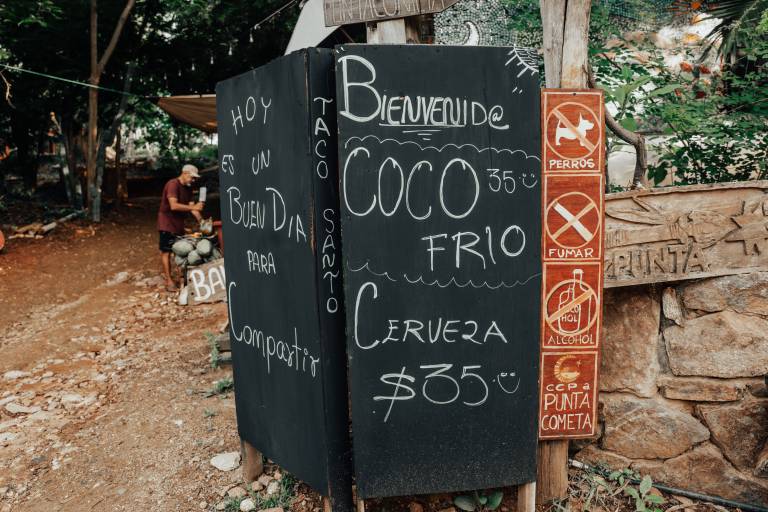 HOY
ES UN
BUEN DIA
PARA
Compartir
TACO SANTO
BIENVENID@
COCO 35
FRIO
CERVEZA
$35
PERROS
FUMAR
ALCOHOL
ALCOHOL
CCPA
PUNTA
COMETA
PUNTA
BA